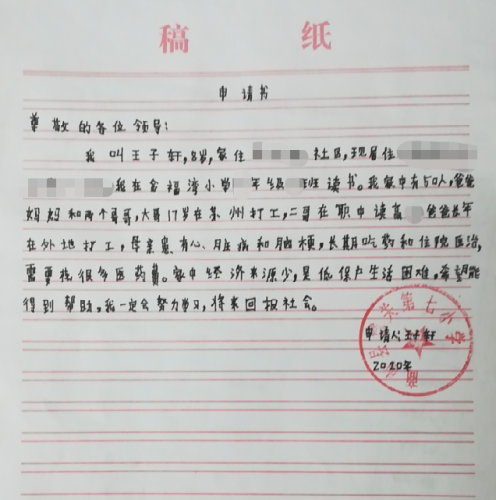 稿 纸
申请书
尊敬的各位领导:
我叫王子轩,8岁,家住 社区,现居住
我在金福湾小学 年级 班读书。我家中有5口人,爸爸
妈妈和两个哥哥,大哥17岁在苏州打工,二哥在职中读高 爸爸长年
在外地打工,母亲患有心脏病和脑梗,长期吃药和住院医治,
需要花很多医药费。家中经济来源少,是低保户生活困难,希望能
得到帮助,我一定会努力学习,将来回报社会。
申请人:王子轩
2020年
第七小学